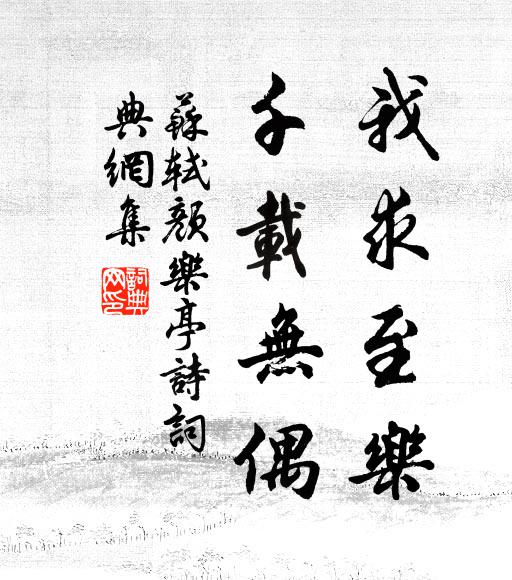 我求至樂
千載無偶
蘇軾顏樂亭詩詞
典網集
詞典網印